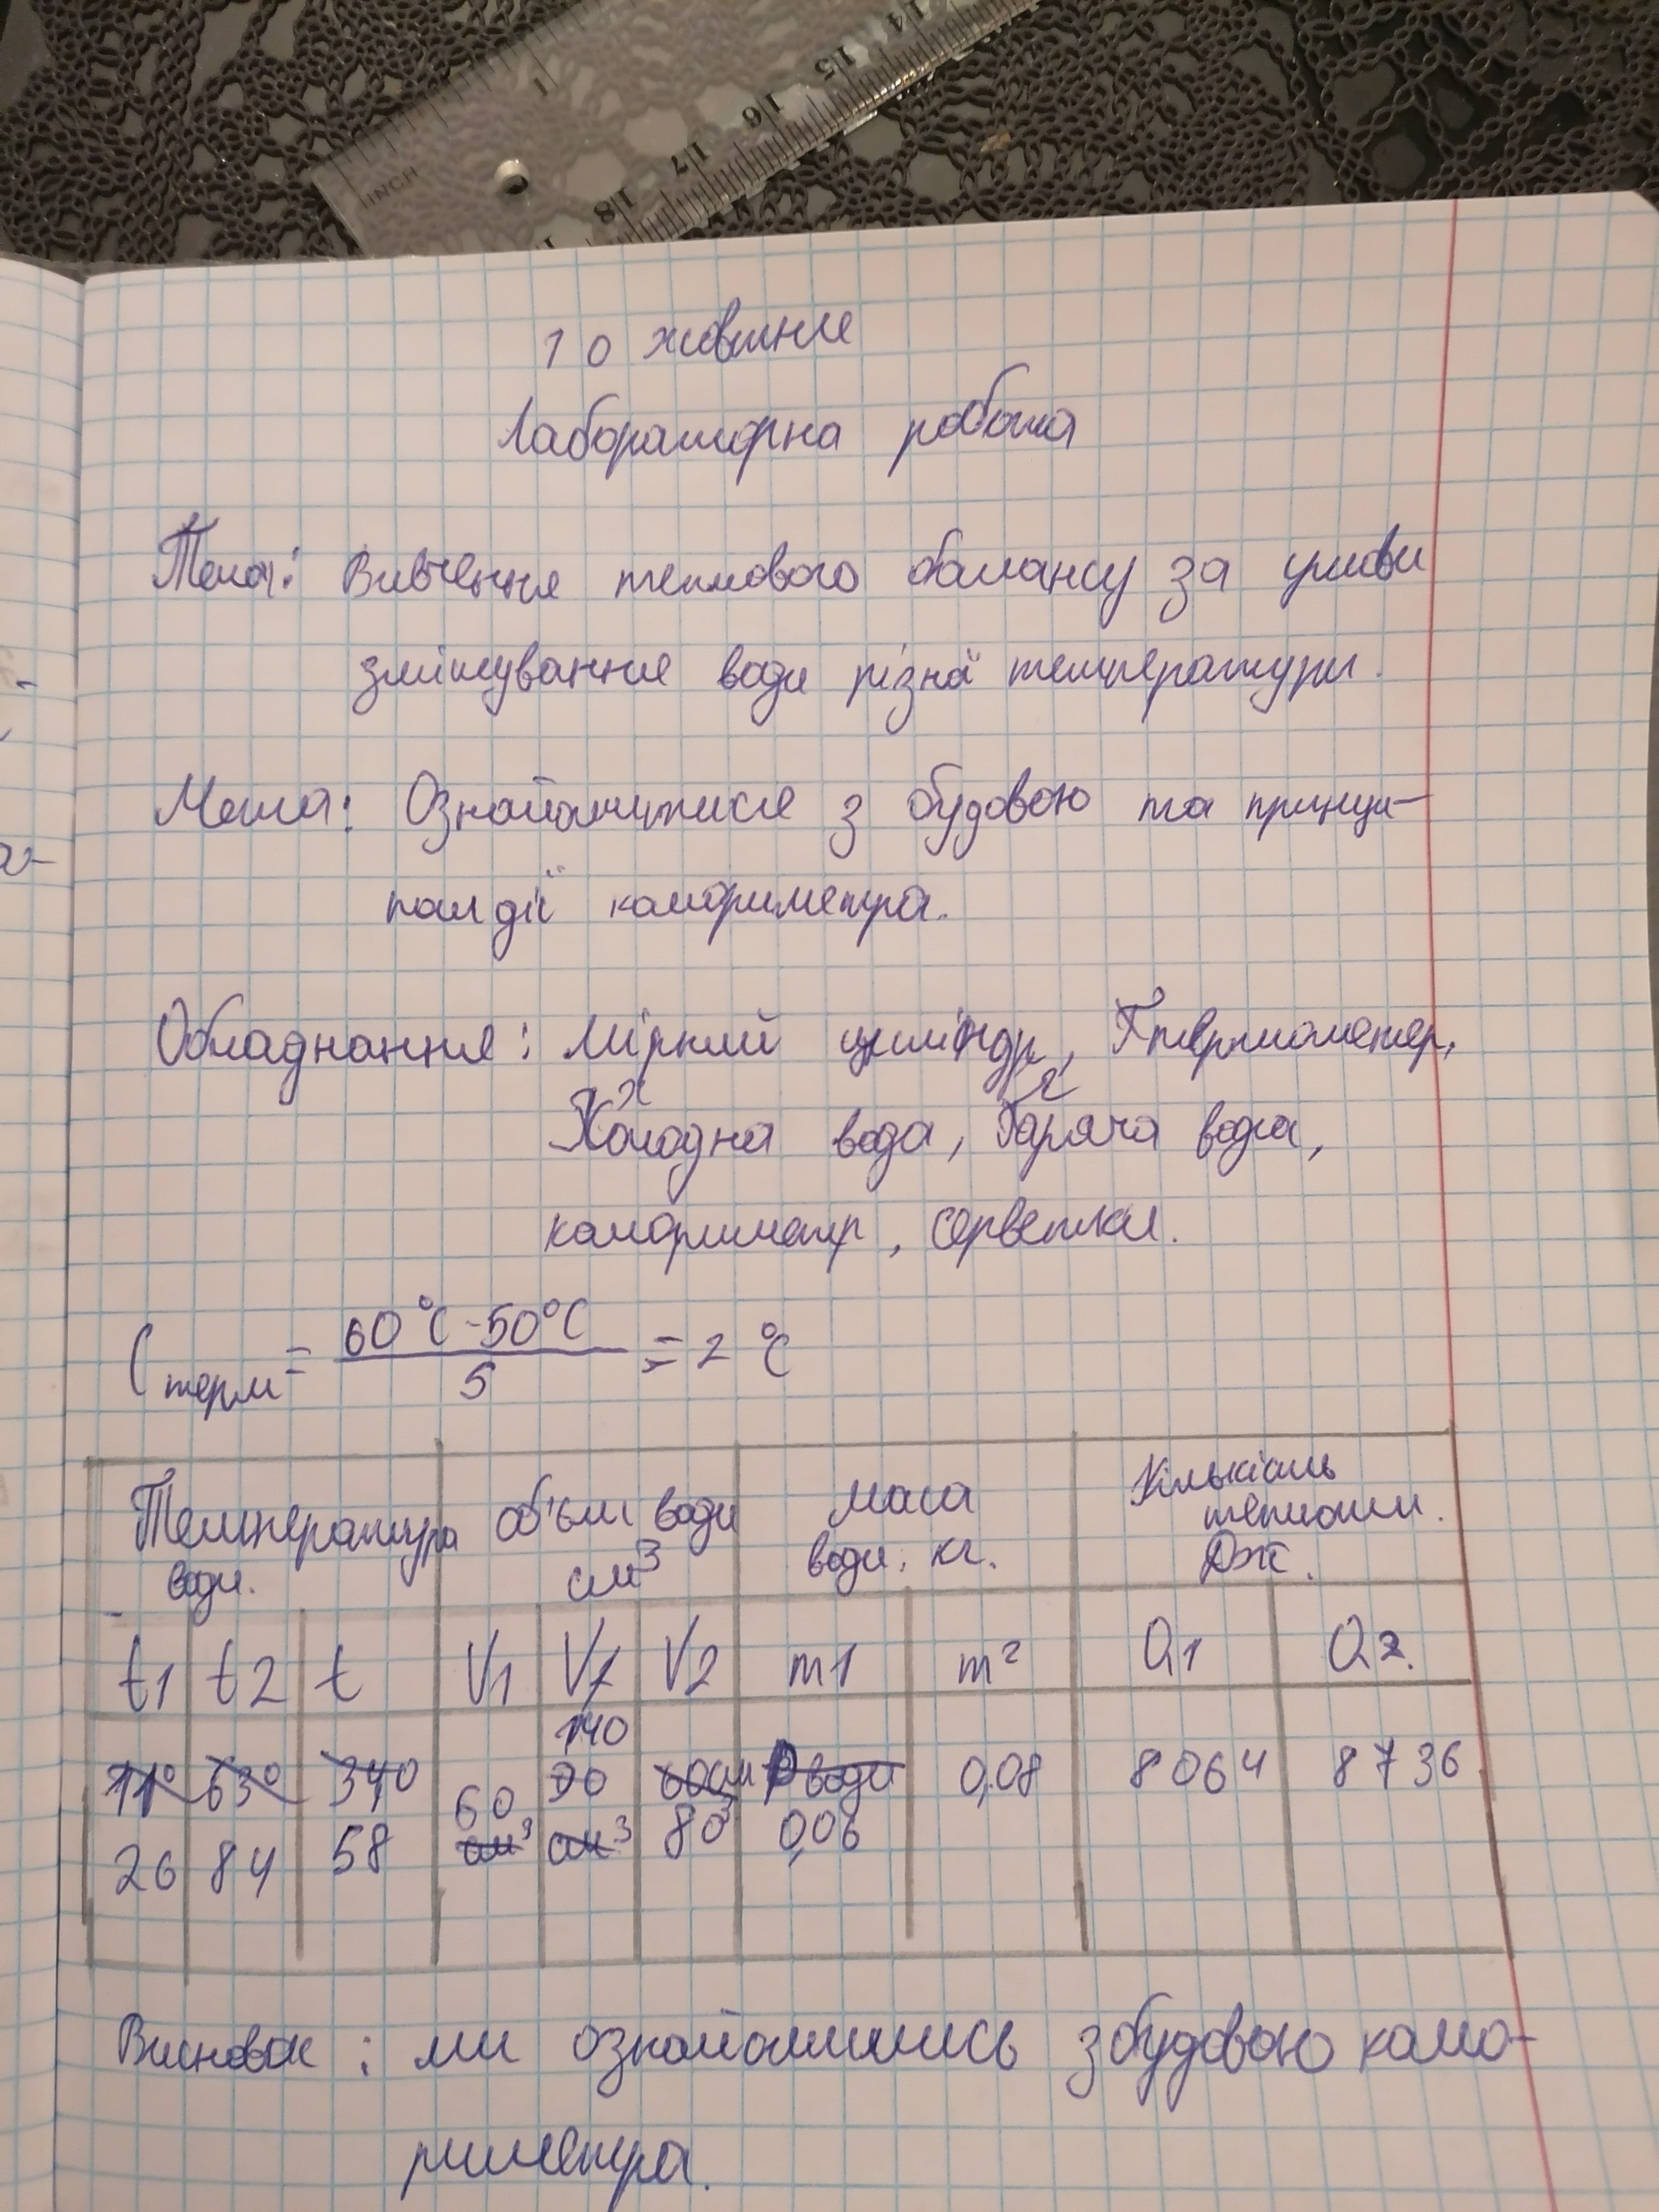 INCH 1
18 17 16 15 14
10 жовтня
Лабораторна робота
Тема: Вивчення теплового балансу за умови
змішування води різної температури.
Мета: Ознайомитися з будовою та принци-
пом дії калориметра.
Обладнання: мірний циліндр, термометер,
Холодна вода, Гаряча вода,
калориметр, серветки.
C терм = 60°C - 50°C / 5 = 2 °C
Температура об'єм води маса Кількість
води. см³ води, кг. теплоти.
Дж.
t1 t2 t V1 V1 V2 m1 m² Q1 Q2.
140
11° 63° 340 60 90 60см³ води 0,08 8064 8736
26 84 58 см³ см³ 80 0,06
Висновок: ми ознайомились з будовою кало-
риметра.